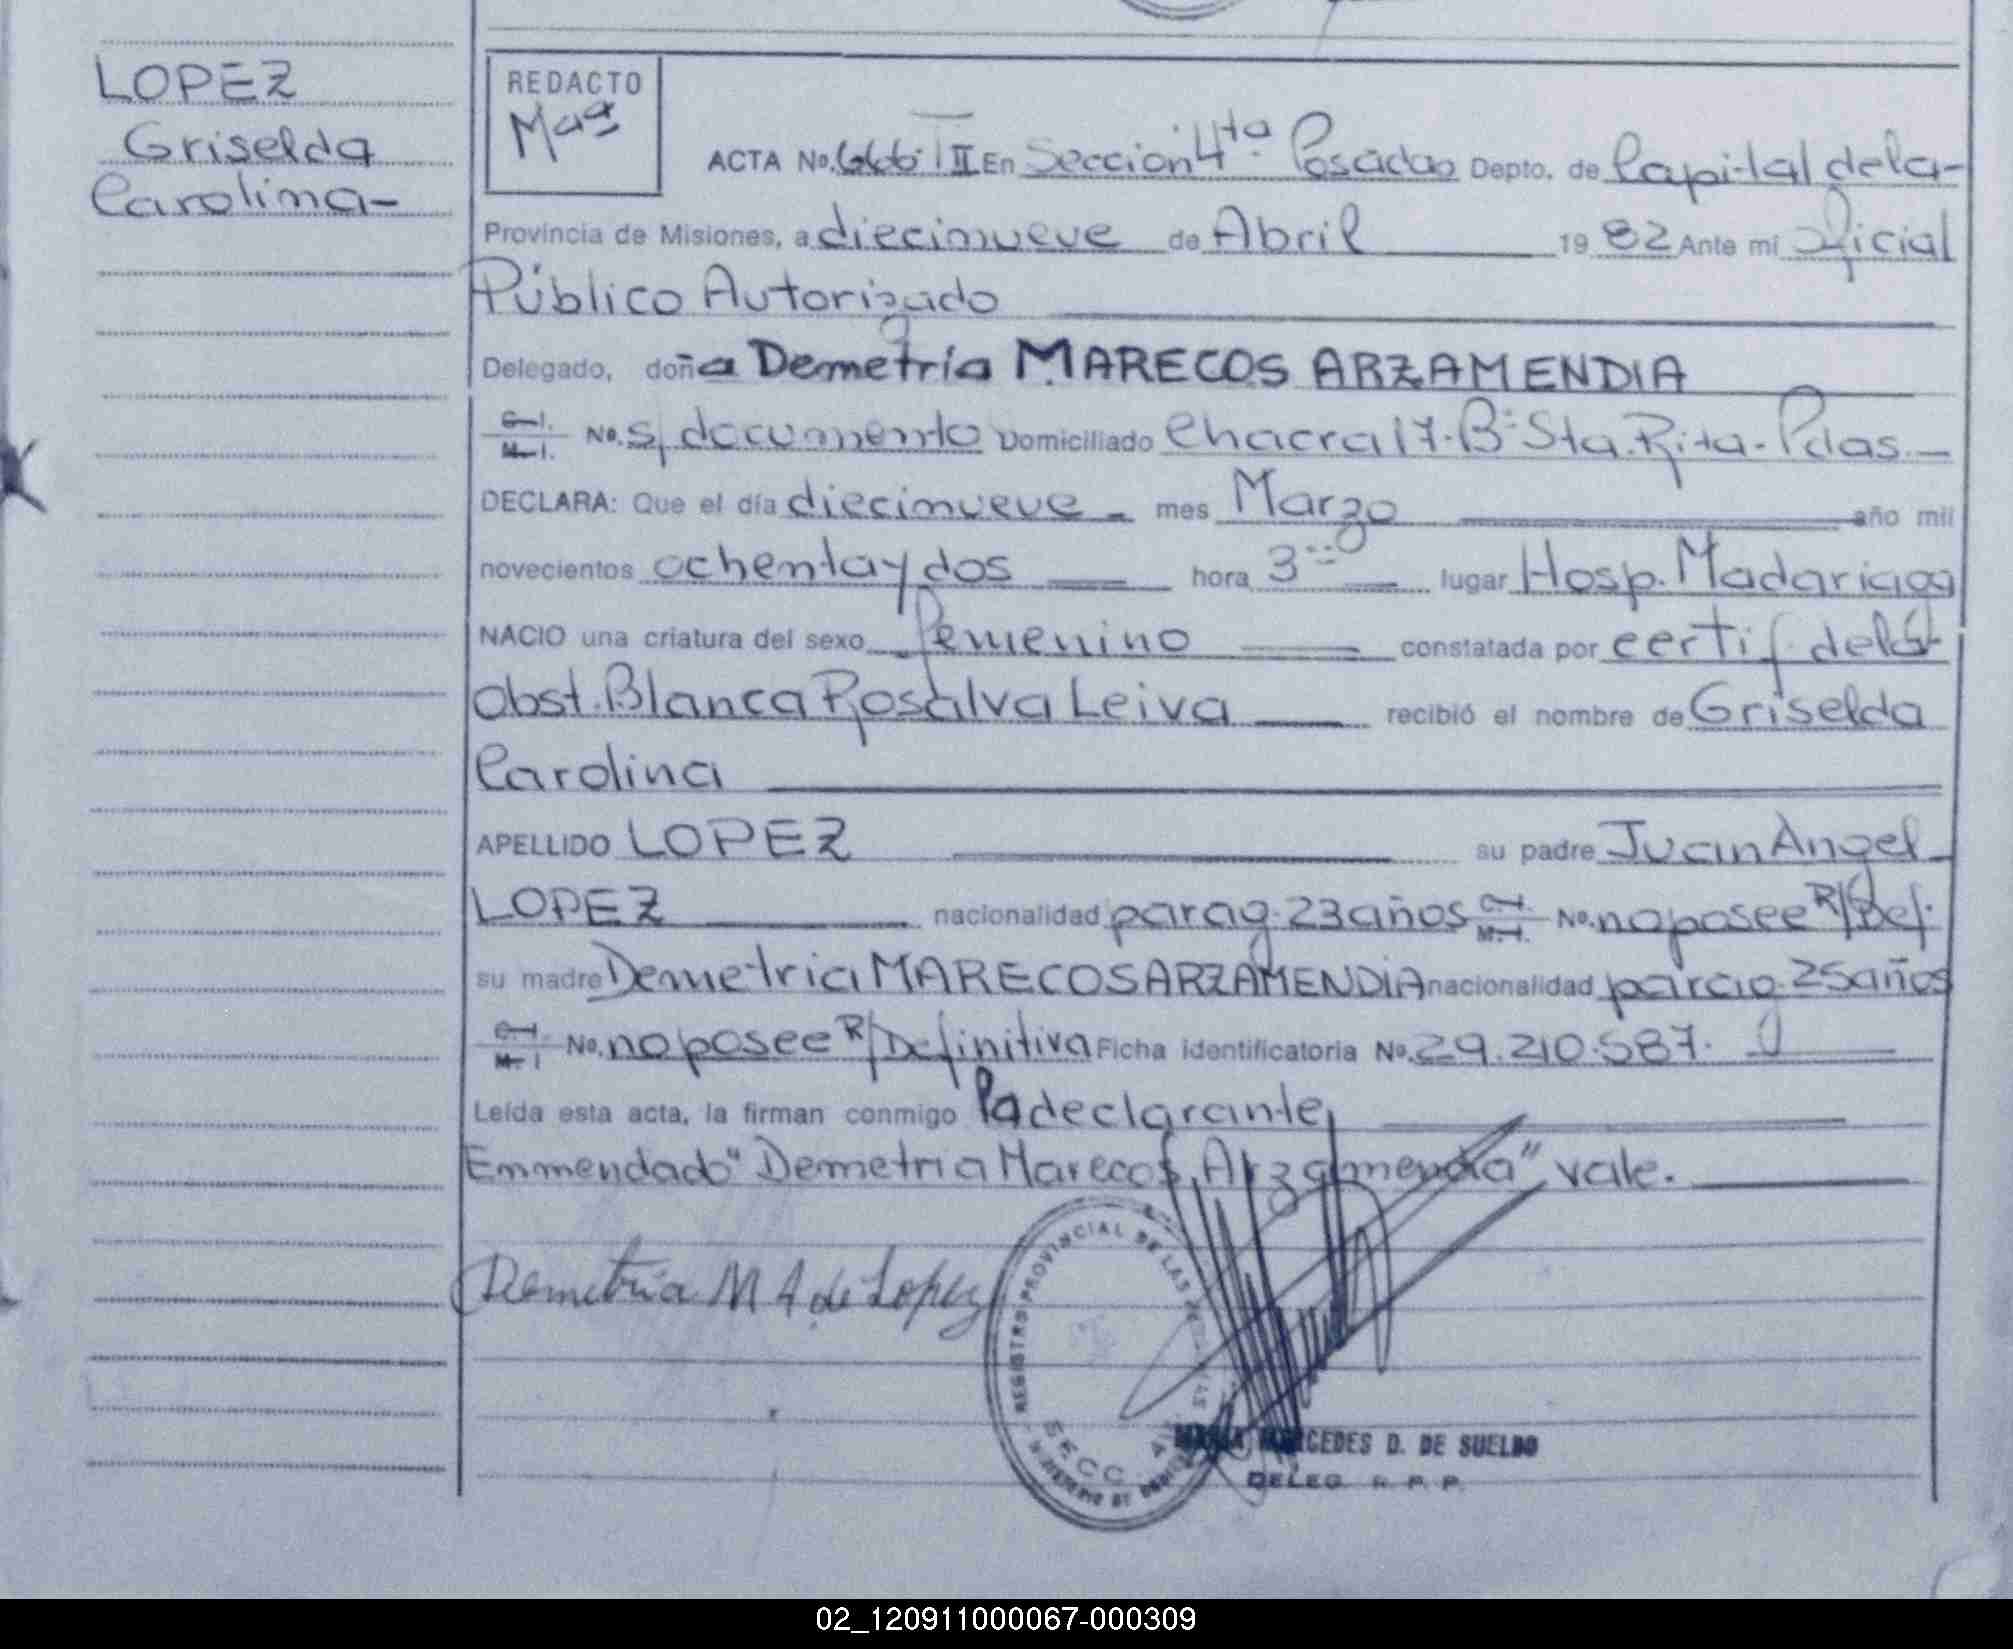 LOPEZ
Griselda
Carolina-
REDACTO
Mªª
ACTA No. 666 T II En Sección 4ta. Posadas Depto. de Capital de la-
Provincia de Misiones, a diecinueve de Abril 19 82 Ante mí Oficial
Público Autorizado
Delegado, doña Demetria MARECOS ARZAMENDIA
C.I. M.I. No. s/ documento Domiciliado Chacra 17. Bº Sta. Rita - Pdas.
DECLARA: Que el día diecinueve - mes Marzo año mil
novecientos ochenta y dos hora 3 lugar Hosp. Madariaga
NACIO una criatura del sexo femenino constatada por certif. de la
Obst. Blanca Rosalva Leiva recibió el nombre de Griselda
Carolina
APELLIDO LOPEZ su padre Juan Angel
LOPEZ nacionalidad parag. 23 años C.I. M.I. No. no posee R/Def.
su madre Demetria MARECOS ARZAMENDIA nacionalidad parag. 25 años
C.I. M.I. No. no posee R/Definitiva Ficha identificatoria No. 29.210.587.
Leída esta acta, la firman conmigo la declarante,
Enmendado "Demetria Marecos Arzamendia" vale.
Demetria M A de Lopez
REGISTRO PROVINCIAL DE LAS
SECC. 4
MARIA MERCEDES D. DE SUELDO
DELEG. R. P. P.
02_120911000067-000309